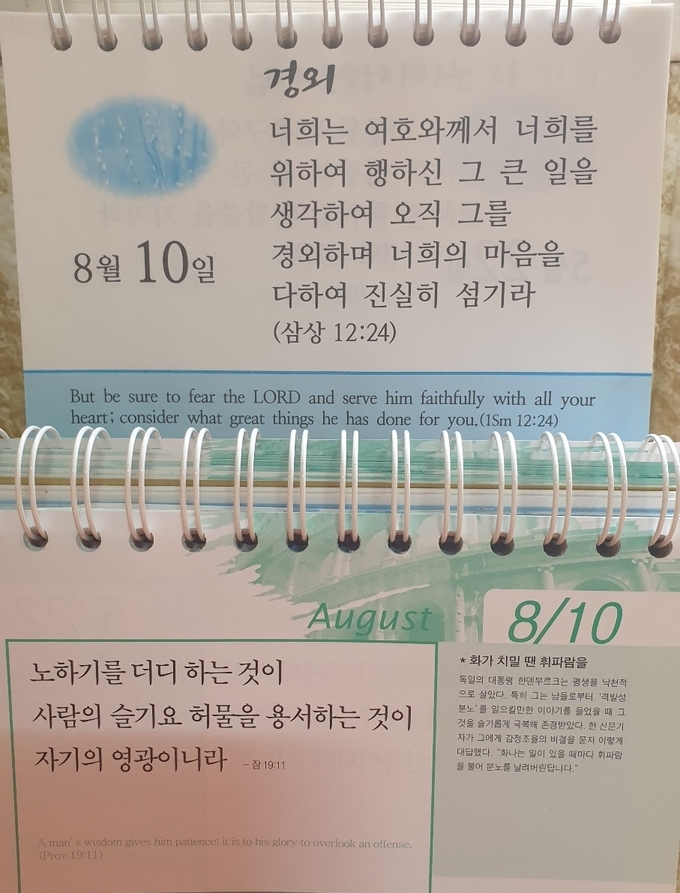 경외
너희는 여호와께서 너희를
위하여 행하신 그 큰 일을
생각하여 오직 그를
경외하며 너희의 마음을
다하여 진실히 섬기라
(삼상 12:24)
8월 10일
But be sure to fear the LORD and serve him faithfully with all your
heart; consider what great things he has done for you.(1Sm 12:24)
August
8/10
노하기를 더디 하는 것이
사람의 슬기요 허물을 용서하는 것이
자기의 영광이니라 – 잠 19:11
A man's wisdom gives him patience; it is to his glory to overlook an offense.
(Prov 19:11)
* 화가 치밀 땐 휘파람을
독일의 대통령 한덴부르크는 평생을 낙천적
으로 살았다. 특히 그는 남들로부터 '격발성
분노'를 일으킬만한 이야기를 들었을 때 그
것을 슬기롭게 극복해 존경받았다. 한 신문기
자가 그에게 감정조율의 비결을 묻자 이렇게
대답했다. "화나는 일이 있을 때마다 휘파람
을 불어 분노를 날려버린답니다."